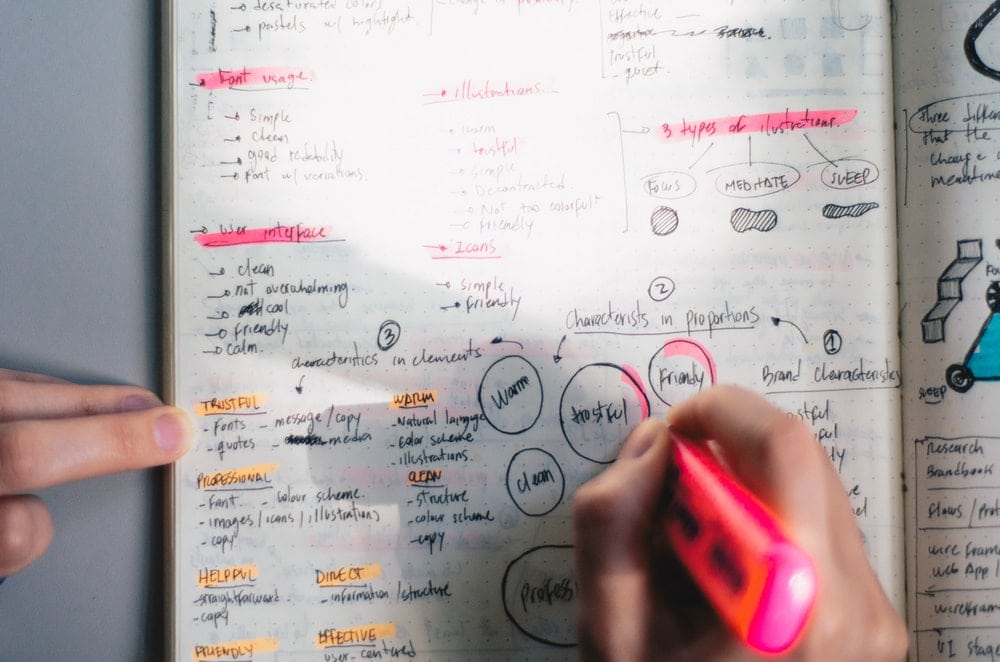 desaturated colors
pastels w/ hightlight.
change in primary.
Effective
trustful
- quiet.
Font usage
Simple
clean
good redability
font w/ variations.
illustrations.
warm
trustful
simple
Decontracted.
Not too colorfull
friendly
3 types of ilustrations.
FOCUS
MEDITATE
SLEEP
user interface
clean
not overwhelming.
cool
friendly
calm.
Icons
simple
friendly
2
Characterists in proportions
1
Brand Characteristics
3
characteristics in elements
Warm
trustful
Friendly
clean
profess
TRUSTFUL
- Fonts - message/copy
- quotes - media
WARM
- Natural language
- Color scheme
- illustrations.
PROFESSIONAL
- Font - colour scheme.
- images/icons/illustrations
- copy
CLEAN
- structure
- colour scheme
- copy
HELPFUL
- straightforward
- copy
DIRECT
- information/structure
FRIENDLY
EFFECTIVE
user-centered
three differ
that the
change
meantime
SLEEP
Research
Brandbook
Flows / Prot
wire fram
web App /
wirefram
UI stage